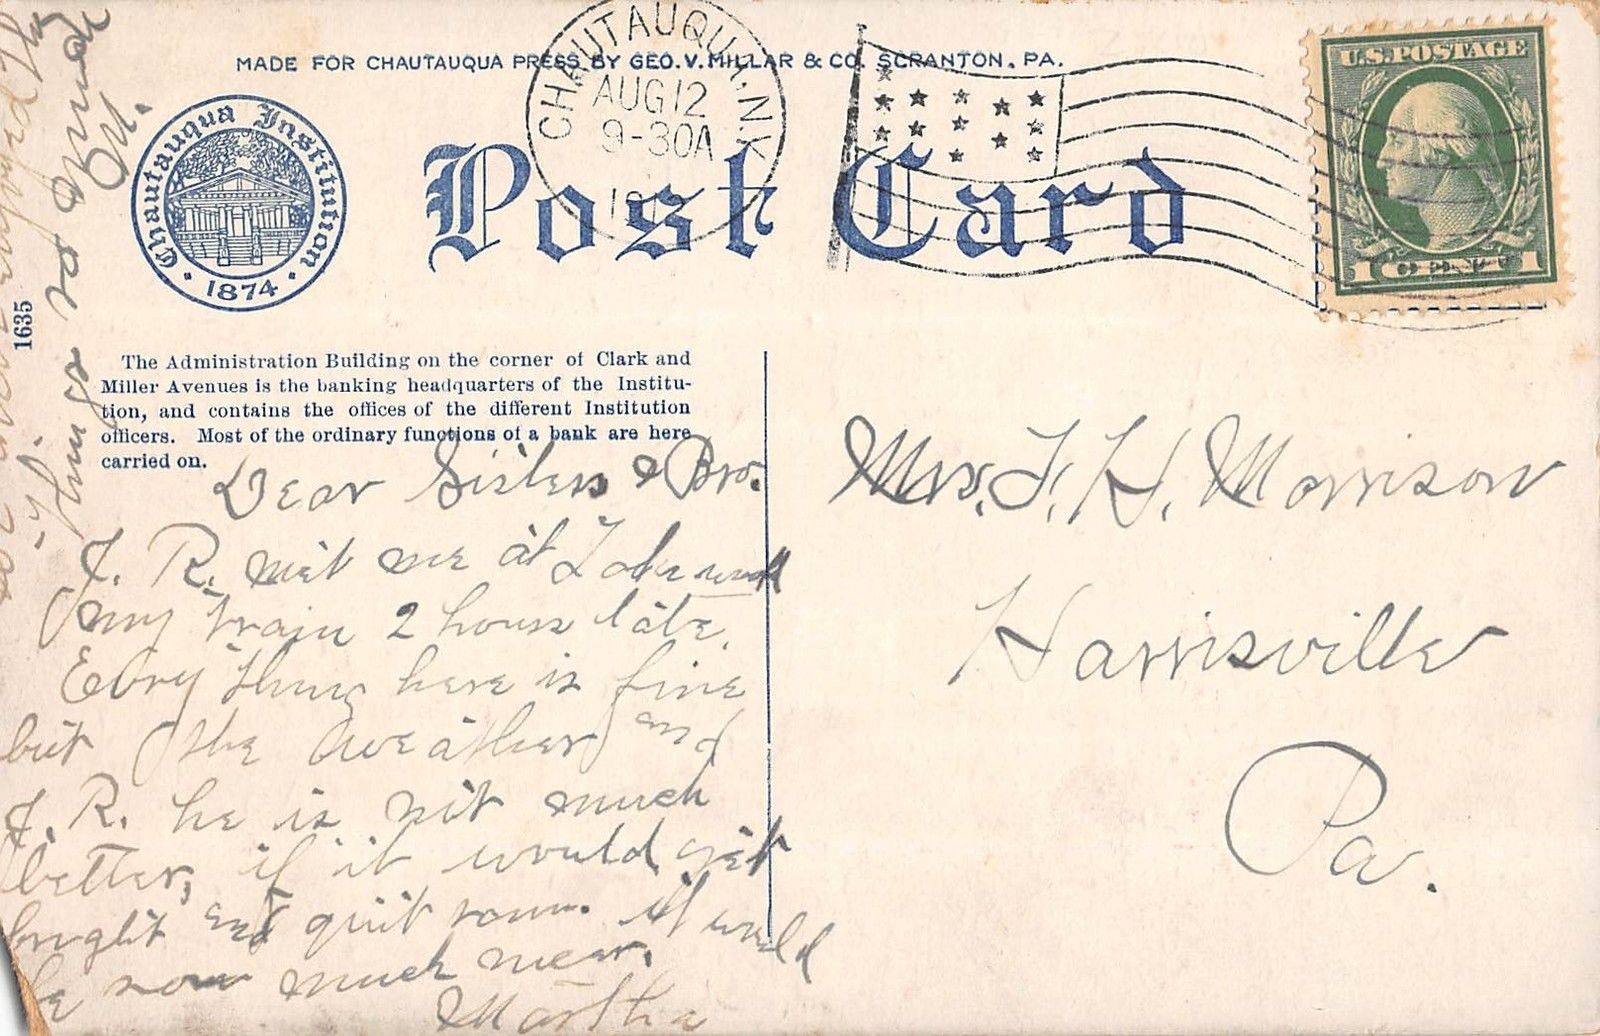 MADE FOR CHAUTAUQUA PRESS BY GEO. V. MILLAR & CO. SCRANTON, PA.
Chautauqua Institution
1874
CHAUTAUQUA, N.Y.
AUG 12
9-30A
Post Card
U.S. POSTAGE
1 1
1635
The Administration Building on the corner of Clark and
Miller Avenues is the banking headquarters of the Institu-
tion, and contains the offices of the different Institution
officers. Most of the ordinary functions of a bank are here
carried on.
Dear Sisters & Bro.
J. R. met me at
my train 2 hours late.
Every thing here is fine
but the weather and
J. R. he is not much
better, if it would get
bright and quit rain. it would
be so much nicer.
Martha
things so
Mrs. F. H. Morrison
Harrisville
Pa.